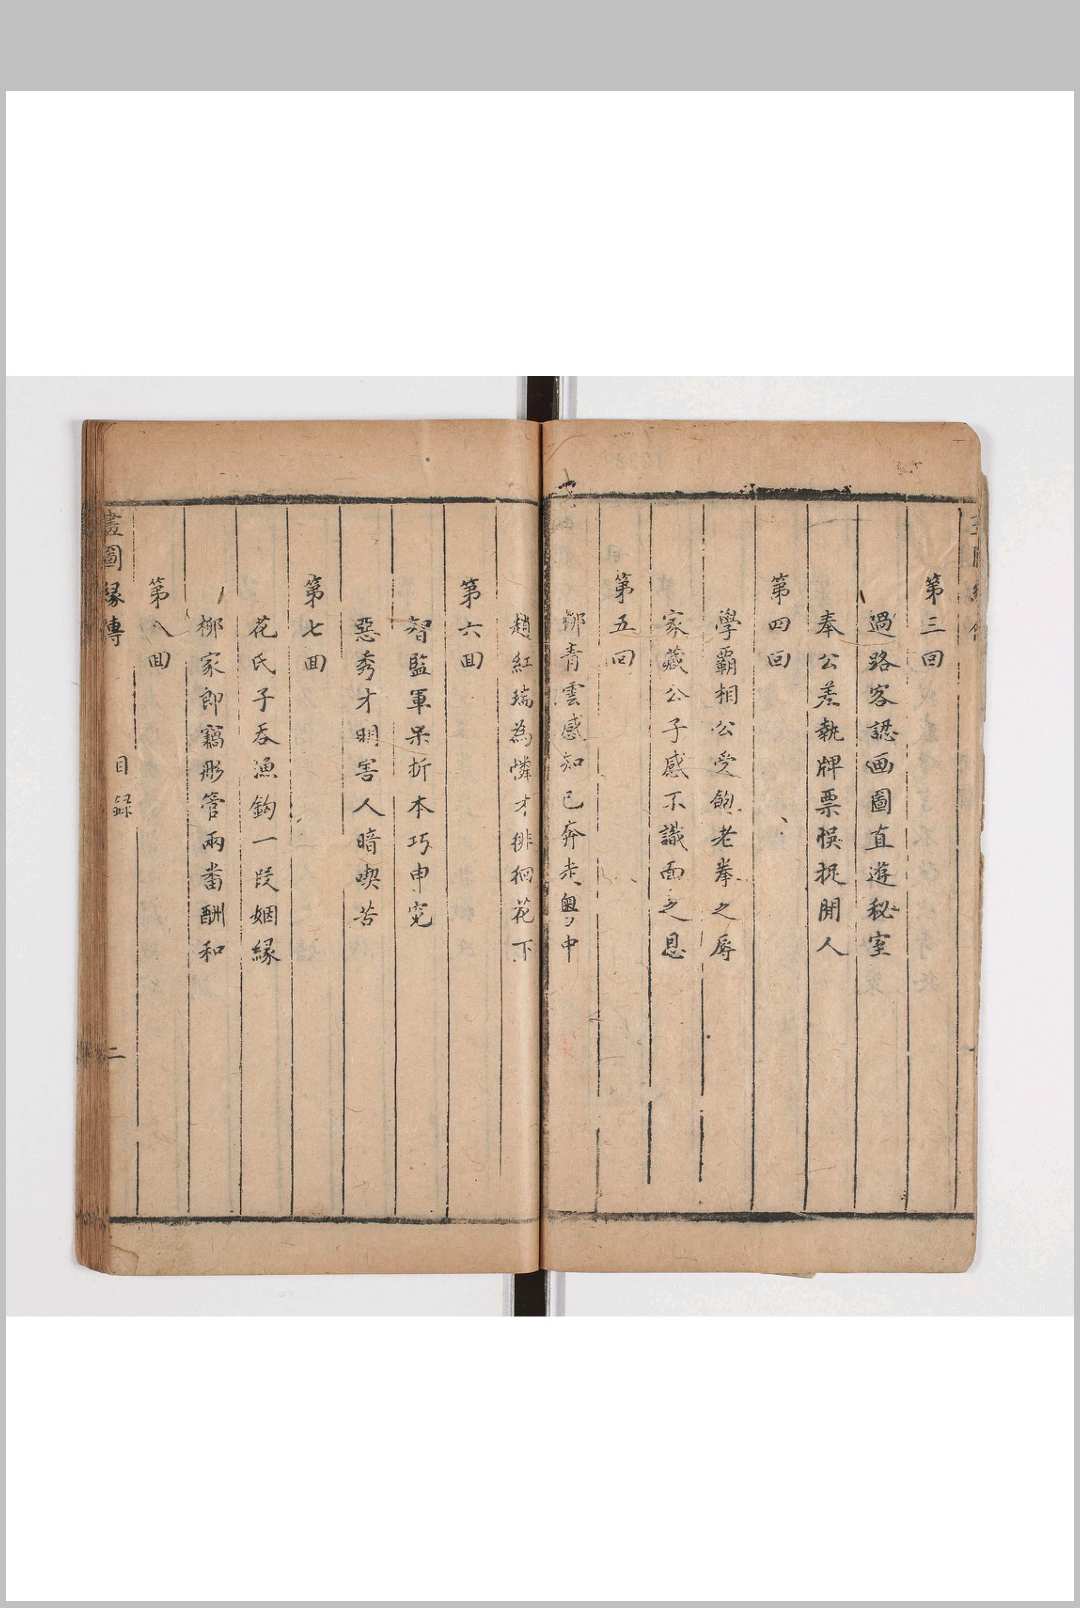 第三回
過路客認画圖直遊秘室
奉公差執牌票悞捉閒人
第四回
學霸相公受飽老拳之辱
家藏公子感不識面之恩
第五回
柳青雲感知已奔走粵中
趙紅瑞為憐才徘徊花下
第六回
智監軍呆折本巧申寃
惡秀才明害人暗喫苦
第七回
花氏子吞漁鈎一段姻緣
柳家郎竊彤管兩畨酬和
第八回
畫圖緣傳 目錄 二